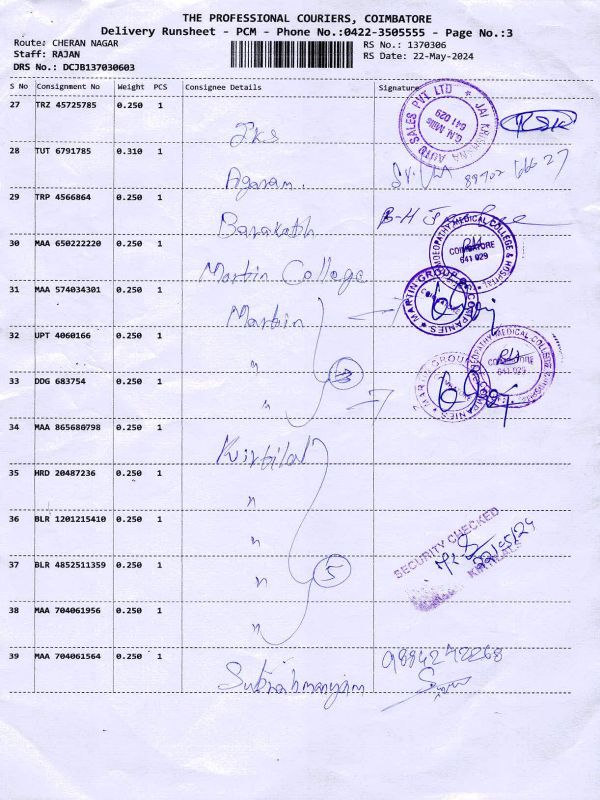 THE PROFESSIONAL COURIERS, COIMBATORE
Delivery Runsheet - PCM - Phone No.:0422-3505555 - Page No.:3
Route: CHERAN NAGAR
RS No.: 1370306
Staff: RAJAN
RS Date: 22-May-2024
DRS No.: DCJB137030603
S No Consignment No Weight PCS Consignee Details Signature
27 TRZ 45725785 0.250 1
JAI KRISHNA AUTO SALES PVT LTD *
G.N Mills
641 029
28 TUT 6791785 0.310 1
Agaram.
29 TRP 4566864 0.250 1
Barakath
30 MAA 650222220 0.250 1
Martin College
HOMOEOPATHY MEDICAL COLLEGE & HOSPITAL
COIMBATORE
641 029
31 MAA 574034301 0.250 1
Martin
MARTIN GROUP OF COMPANIES
32 UPT 4060166 0.250 1
"
HOMOEOPATHY MEDICAL COLLEGE & HOSPITAL
COIMBATORE
641 029
33 DDG 683754 0.250 1
"
3
MARTIN GROUP OF COMPANIES
34 MAA 865680798 0.250 1
35 HRD 20487236 0.250 1
"
36 BLR 1201215410 0.250 1
"
SECURITY CHECKED
22/05/24
37 BLR 4852511359 0.250 1
"
5
38 MAA 704061956 0.250 1
"
39 MAA 704061564 0.250 1
Subrahmanyam
9884242268